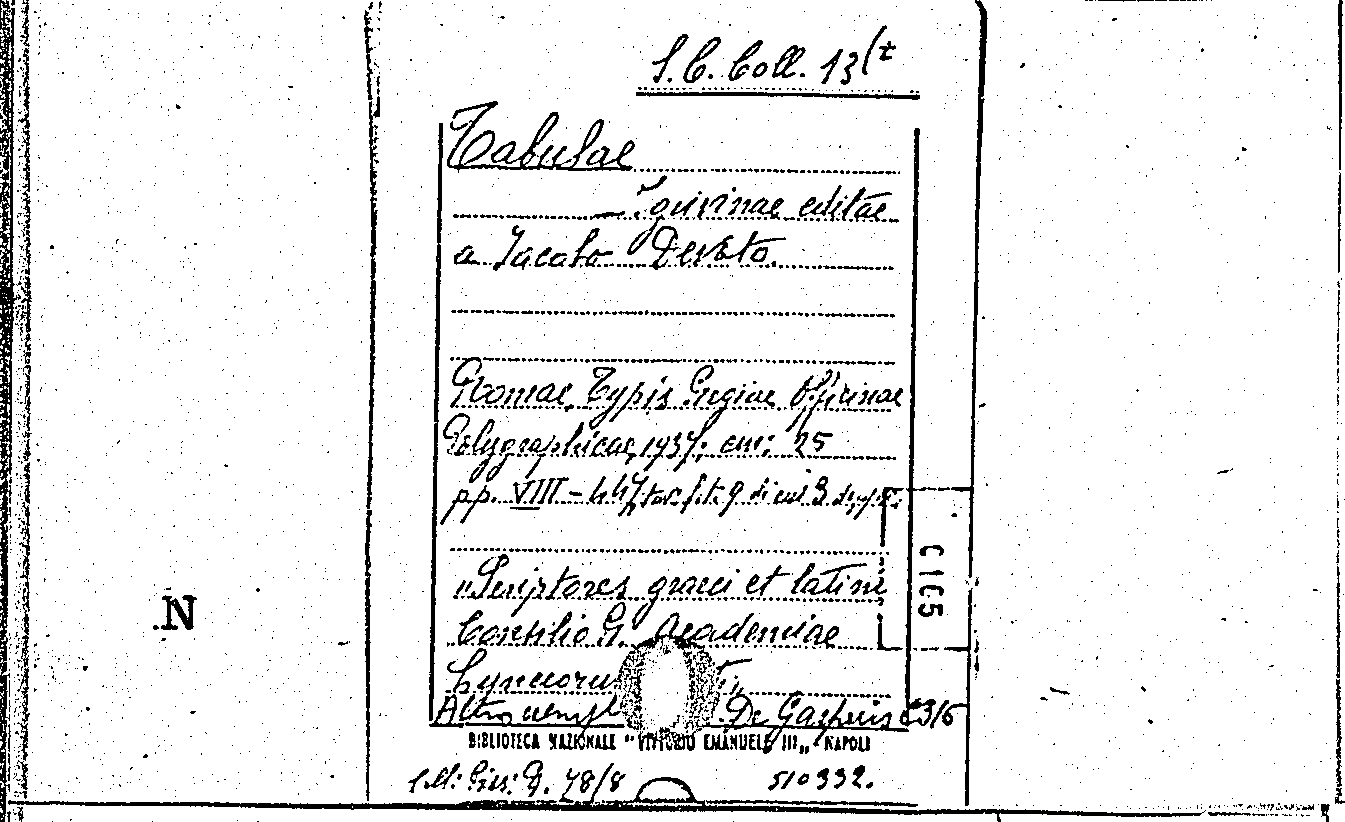 S.C. Coll. 13(t
Tabulae
Iguvinae editae
a Jacobo Devoto.
Romae, Typis Regiae Officinae
Polygraphicae, 1937; cm: 25
pp. VIII - 447, tav. f.t. 9 di cui 3
"Scriptores graeci et latini
Consilio R. Academiae
De Gasperis C3/6
BIBLIOTECA NAZIONALE "VITTORIO EMANUELE III„ - NAPOLI
78/8 510332.
C 165
N